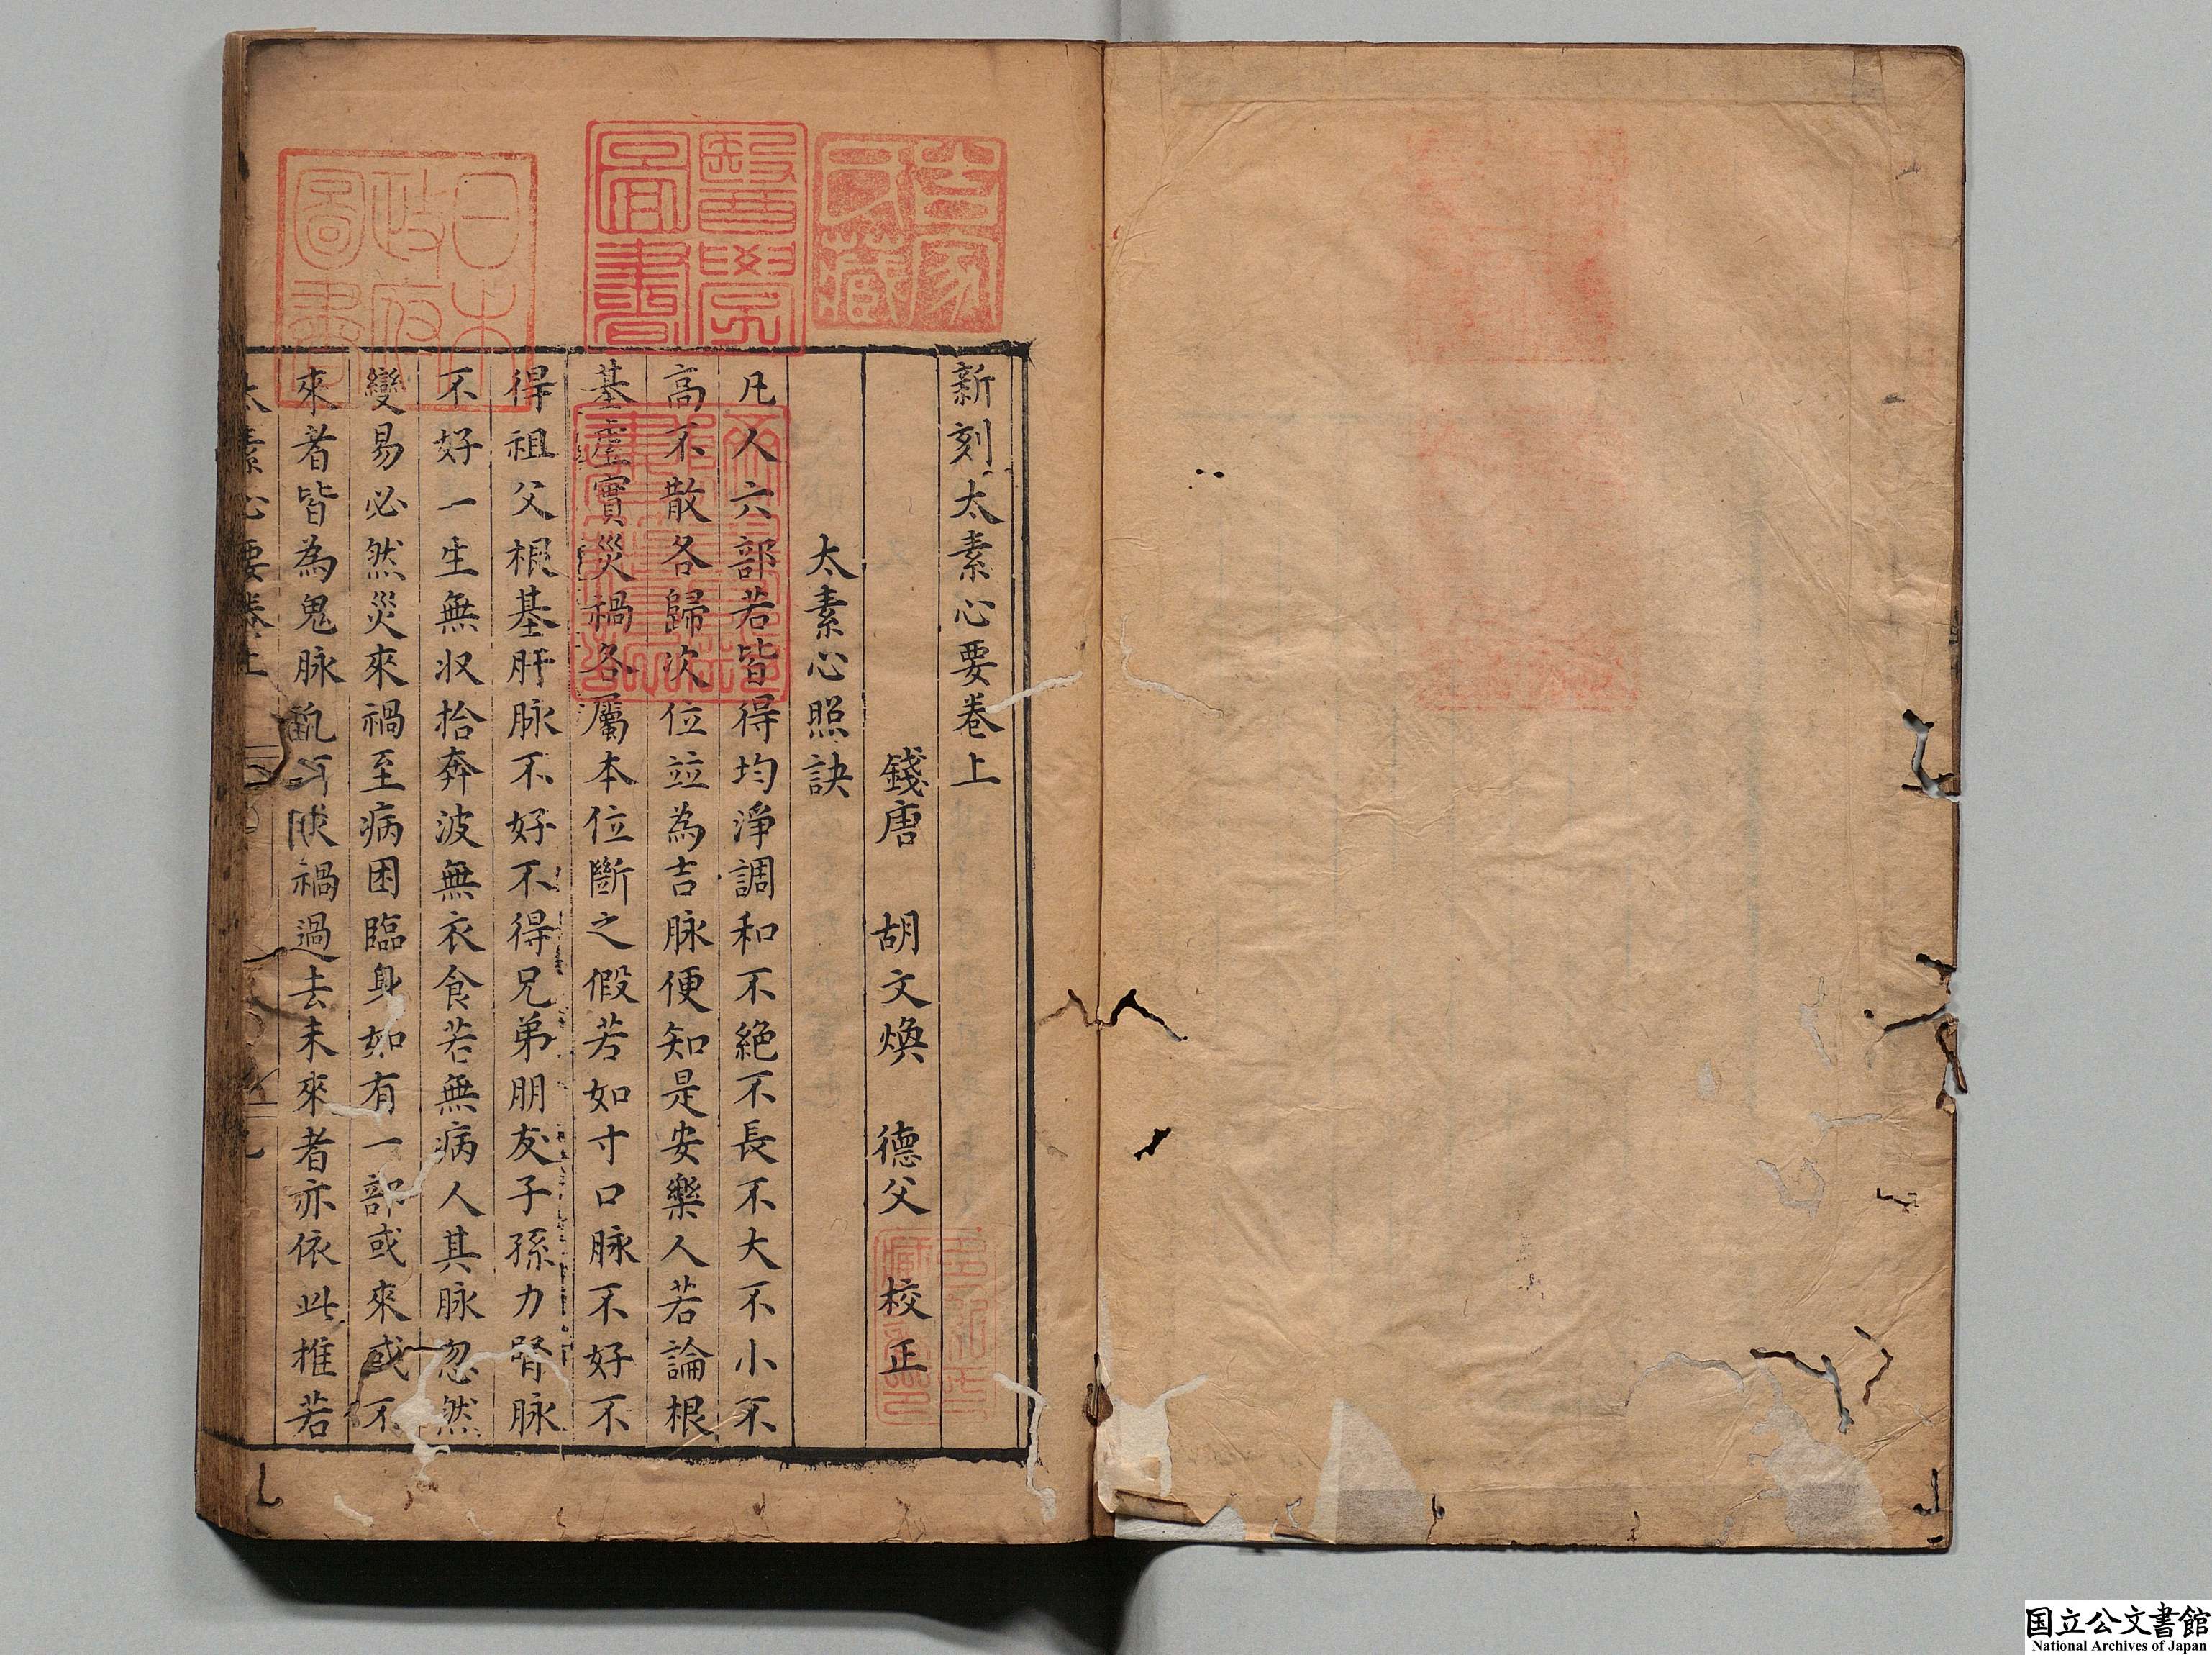 新刻太素心要卷上
錢唐 胡文煥 德父 校正
太素心照訣
凡人六部若皆得均淨調和不絶不長不大不小不
高不散各歸次位竝為吉脉便知是安樂人若論根
基虛實災禍各屬本位斷之假若如寸口脉不好不
得祖父根基肝脉不好不得兄弟朋友子孫力腎脉
不好一生無収拾奔波無衣食若無病人其脉忽然
變易必然災來禍至病困臨身如有一部或來或不
來者皆為鬼脉亂禍過去未來者亦依此推若
太素心要卷上
日本政府圖書
醫學圖書
多紀氏藏書印
国立公文書館
National Archives of Japan